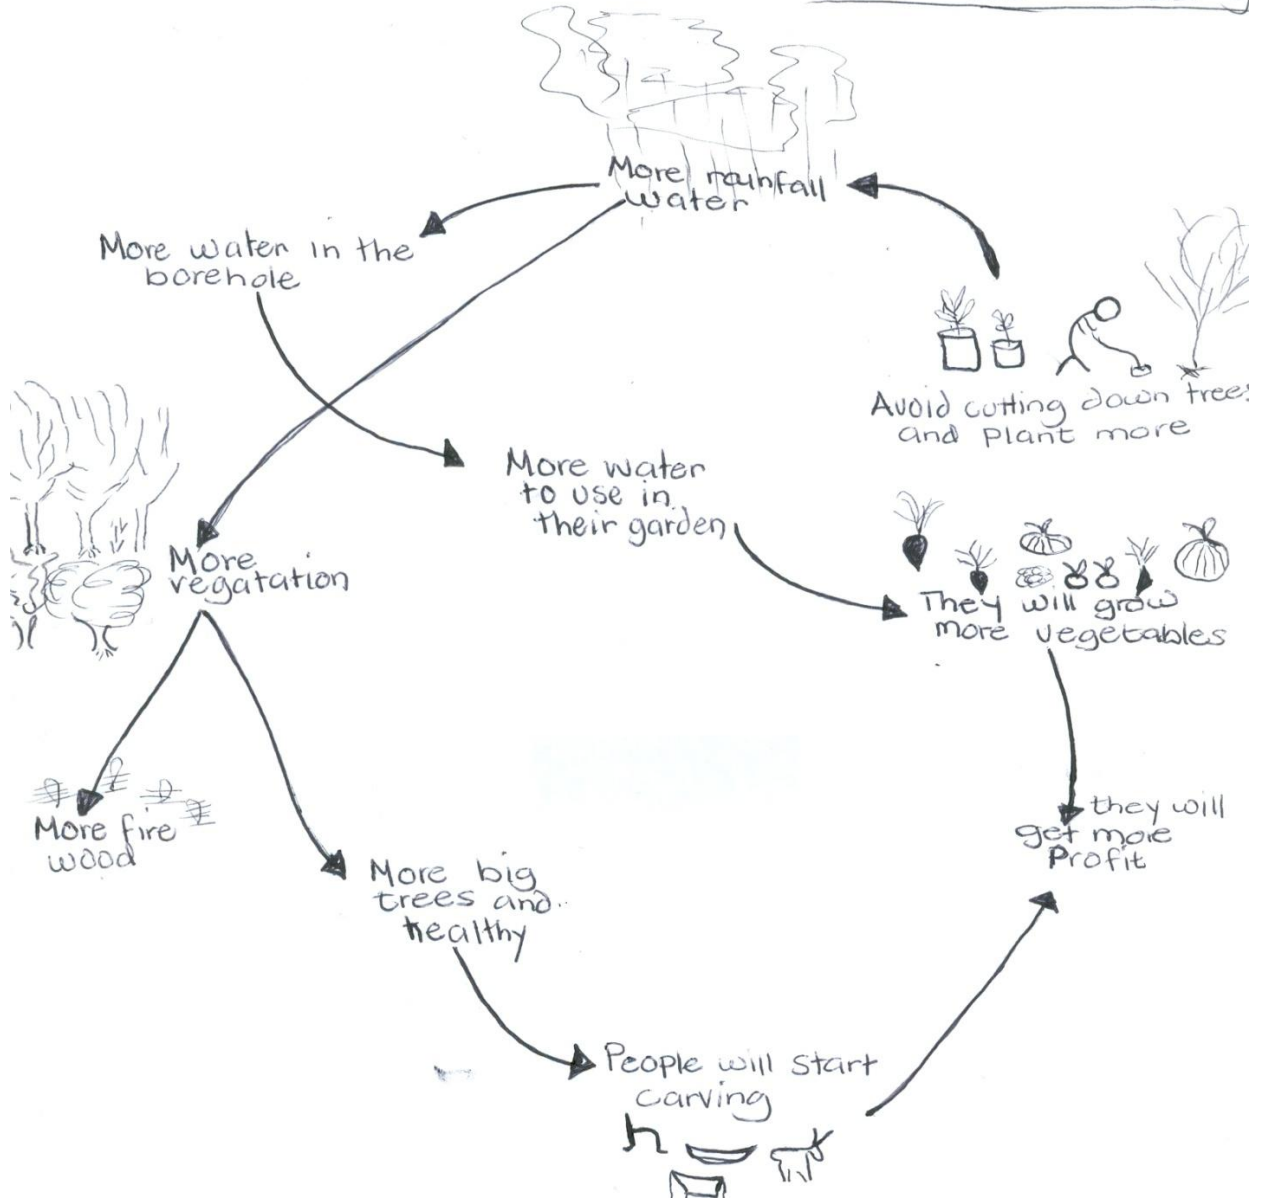 More rainfall
water
More water in the
borehole
Avoid cutting down trees
and plant more
More water
to use in
their garden
More
vegatation
They will grow
more vegetables
More fire
wood
they will
get more
Profit
More big
trees and
healthy
People will start
carving